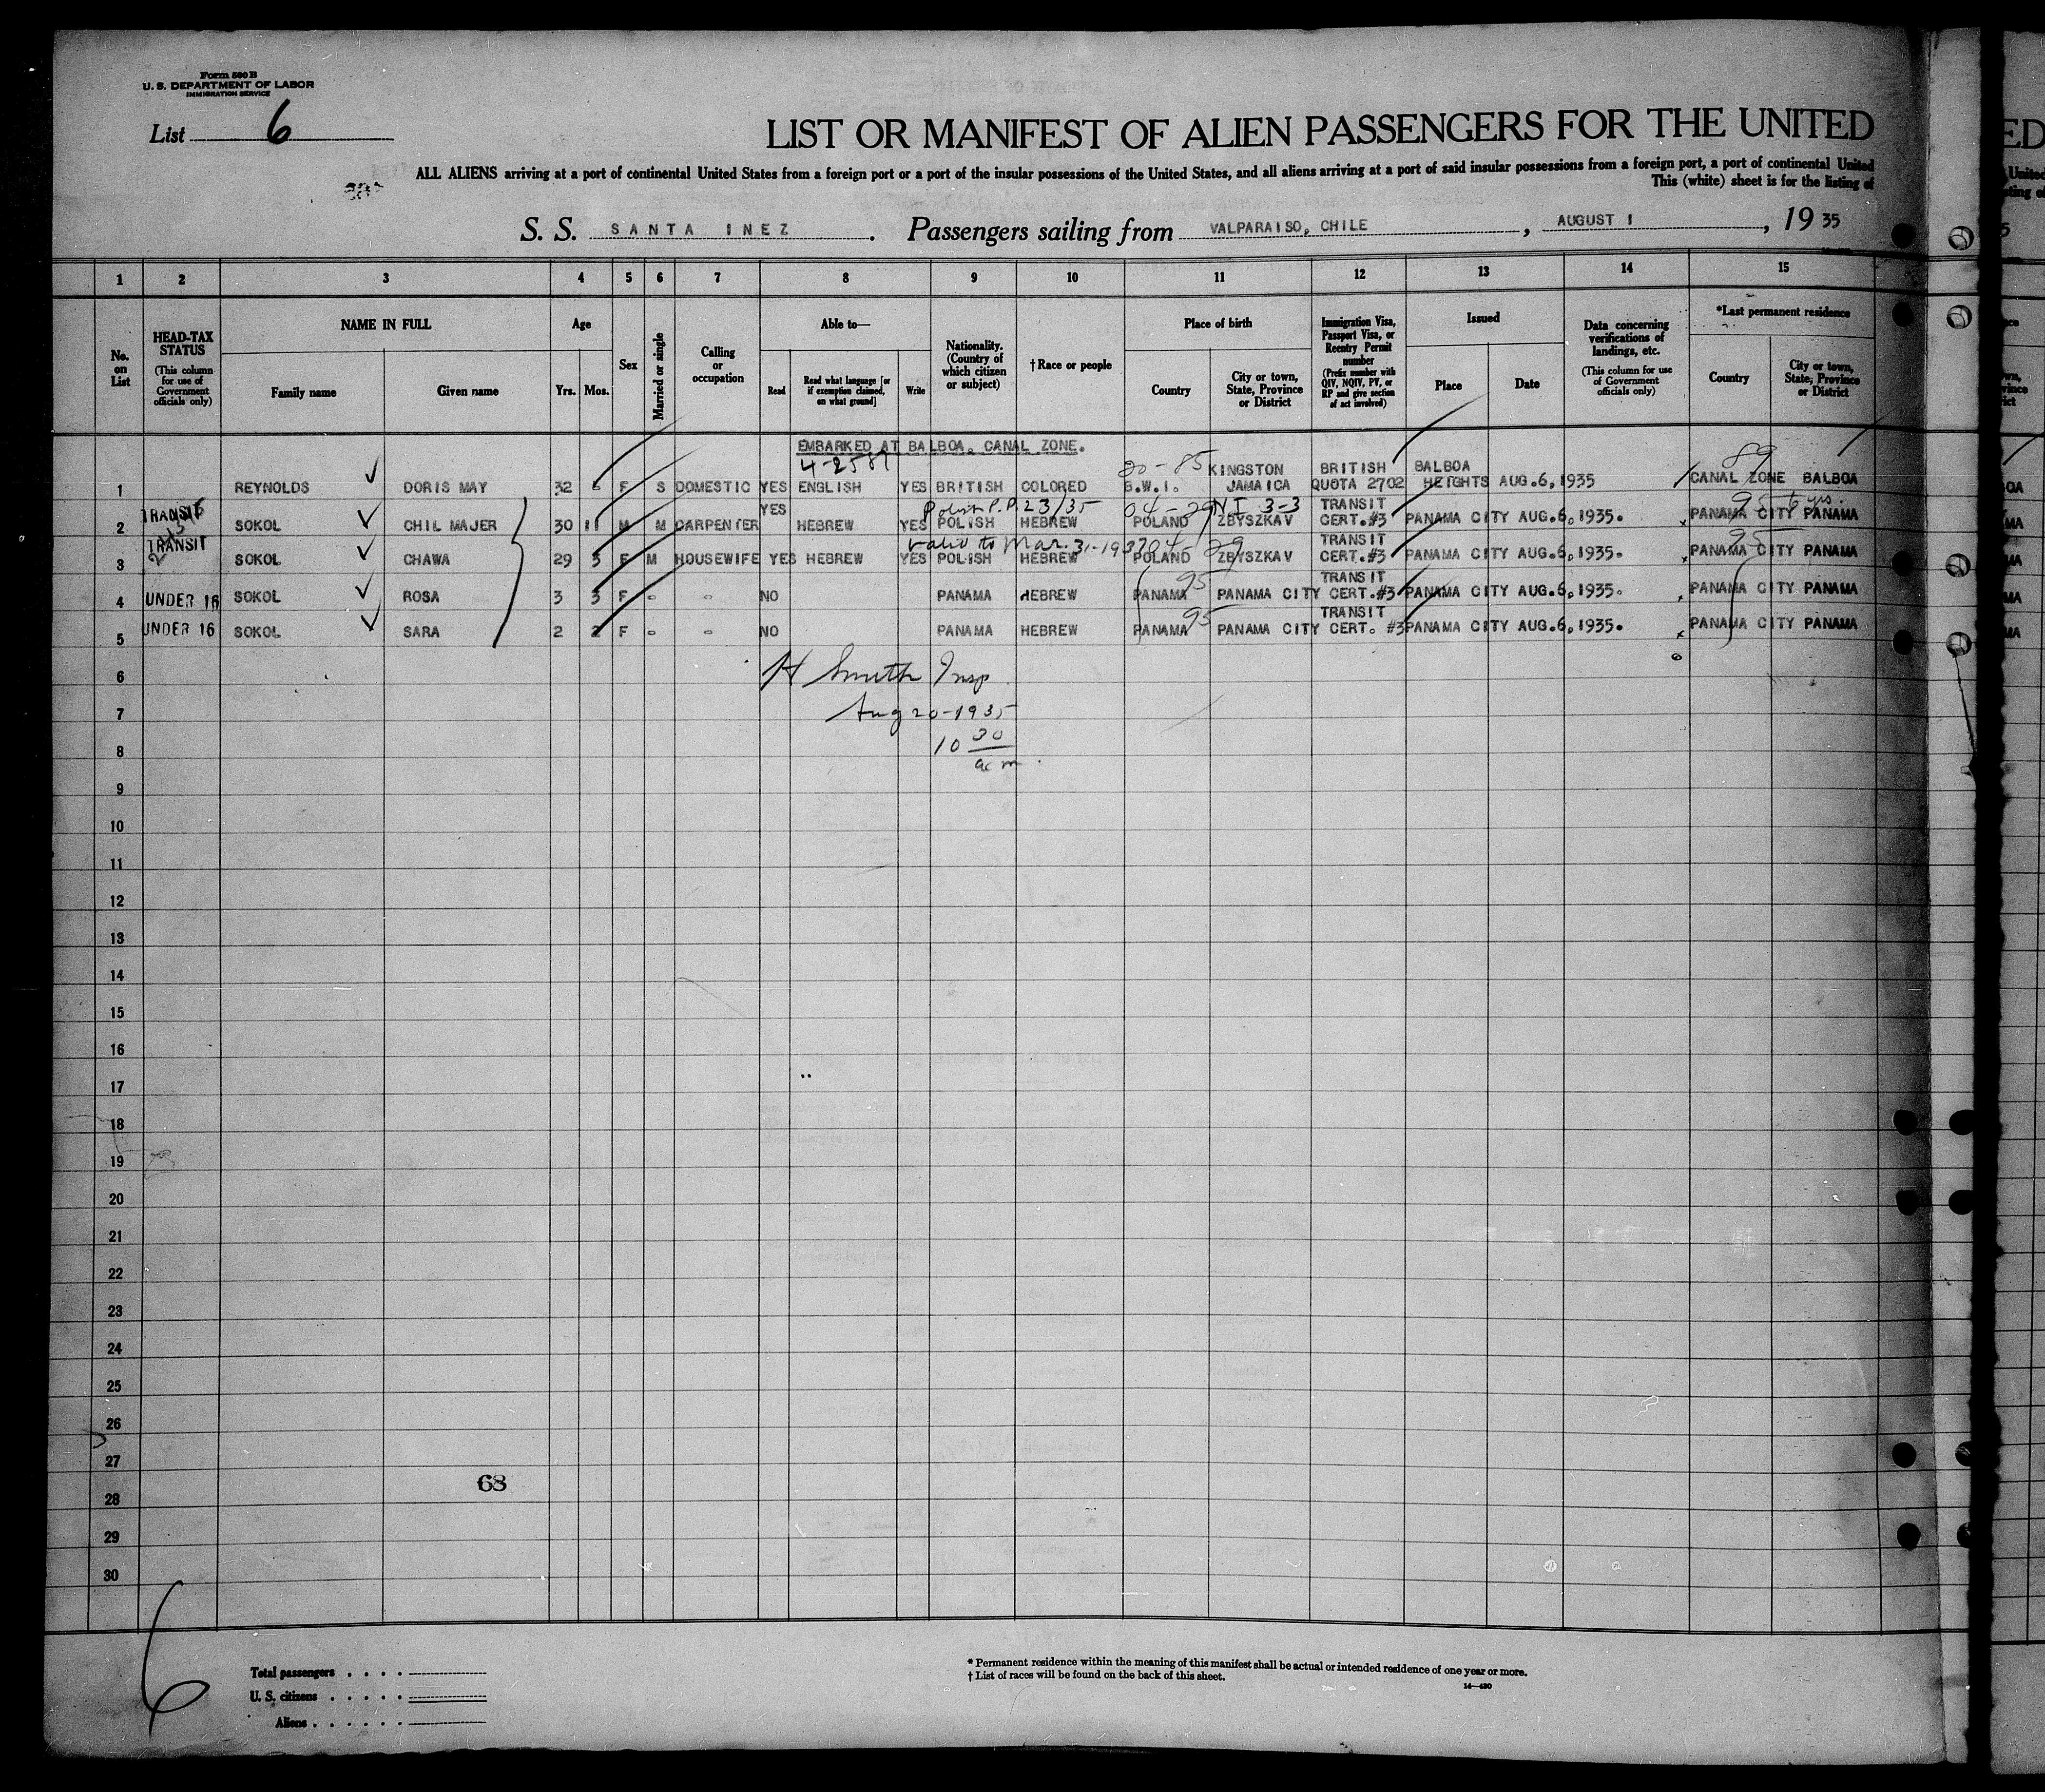 Form 500 B
U. S. DEPARTMENT OF LABOR
IMMIGRATION SERVICE
List 6
LIST OR MANIFEST OF ALIEN PASSENGERS FOR THE UNITED
ALL ALIENS arriving at a port of continental United States from a foreign port or a port of the insular possessions of the United States, and all aliens arriving at a port of said insular possessions from a foreign port, a port of continental United
This (white) sheet is for the listing of
S. S. SANTA INEZ. Passengers sailing from VALPARAISO, CHILE, AUGUST 1, 1935
1 2 3 4 5 6 7 8 9 10 11 12 13 14 15
No. on List
HEAD-TAX STATUS (This column for use of Government officials only)
NAME IN FULL
Family name Given name
Age
Yrs. Mos.
Sex
Married or single
Calling or occupation
Able to—
Read
Read what language [or if exemption claimed, on what ground]
Write
Nationality. (Country of which citizen or subject)
† Race or people
Place of birth
Country
City or town, State, Province or District
Immigration Visa, Passport Visa, or Reentry Permit number (Prefix number with QIV, NQIV, PV, or RP and give section of act involved)
Issued
Place Date
Data concerning verifications of landings, etc. (This column for use of Government officials only)
*Last permanent residence
Country
City or town, State, Province or District
EMBARKED AT BALBOA, CANAL ZONE.
20-85 KINGSTON BRITISH BALBOA 89
1 REYNOLDS DORIS MAY 32 F S DOMESTIC YES ENGLISH YES BRITISH COLORED B.W.I. JAMAICA QUOTA 2702 HEIGHTS AUG.6,1935 CANAL ZONE BALBOA
TRANSIT YES Polish P.P. 23/35 04-29 NI 3-3 TRANSIT 95 6 yrs.
2 SOKOL CHIL MAJER 30 11 M M CARPENTER HEBREW YES POLISH HEBREW POLAND ZBYSZKAV CERT.#3 PANAMA CITY AUG.6,1935. PANAMA CITY PANAMA
TRANSIT valid to Mar. 31-1937 04 29 TRANSIT 95
3 SOKOL CHAWA 29 3 F M HOUSEWIFE YES HEBREW YES POLISH HEBREW POLAND ZBYSZKAV CERT.#3 PANAMA CITY AUG.6,1935. PANAMA CITY PANAMA
95 TRANSIT
4 UNDER 16 SOKOL ROSA 3 3 F - - NO PANAMA HEBREW PANAMA PANAMA CITY CERT.#3 PANAMA CITY AUG.6,1935. PANAMA CITY PANAMA
95 TRANSIT
5 UNDER 16 SOKOL SARA 2 2 F - - NO PANAMA HEBREW PANAMA PANAMA CITY CERT. #3 PANAMA CITY AUG.6,1935. PANAMA CITY PANAMA
6 H Smith Insp
7 Aug 20-1935
8 10 30 am
9
10
11
12
13
14
15
16
17
18
19
20
21
22
23
24
25
26
27
68
28
29
30
6
Total passengers
U. S. citizens
Aliens
* Permanent residence within the meaning of this manifest shall be actual or intended residence of one year or more.
† List of races will be found on the back of this sheet.
14—430